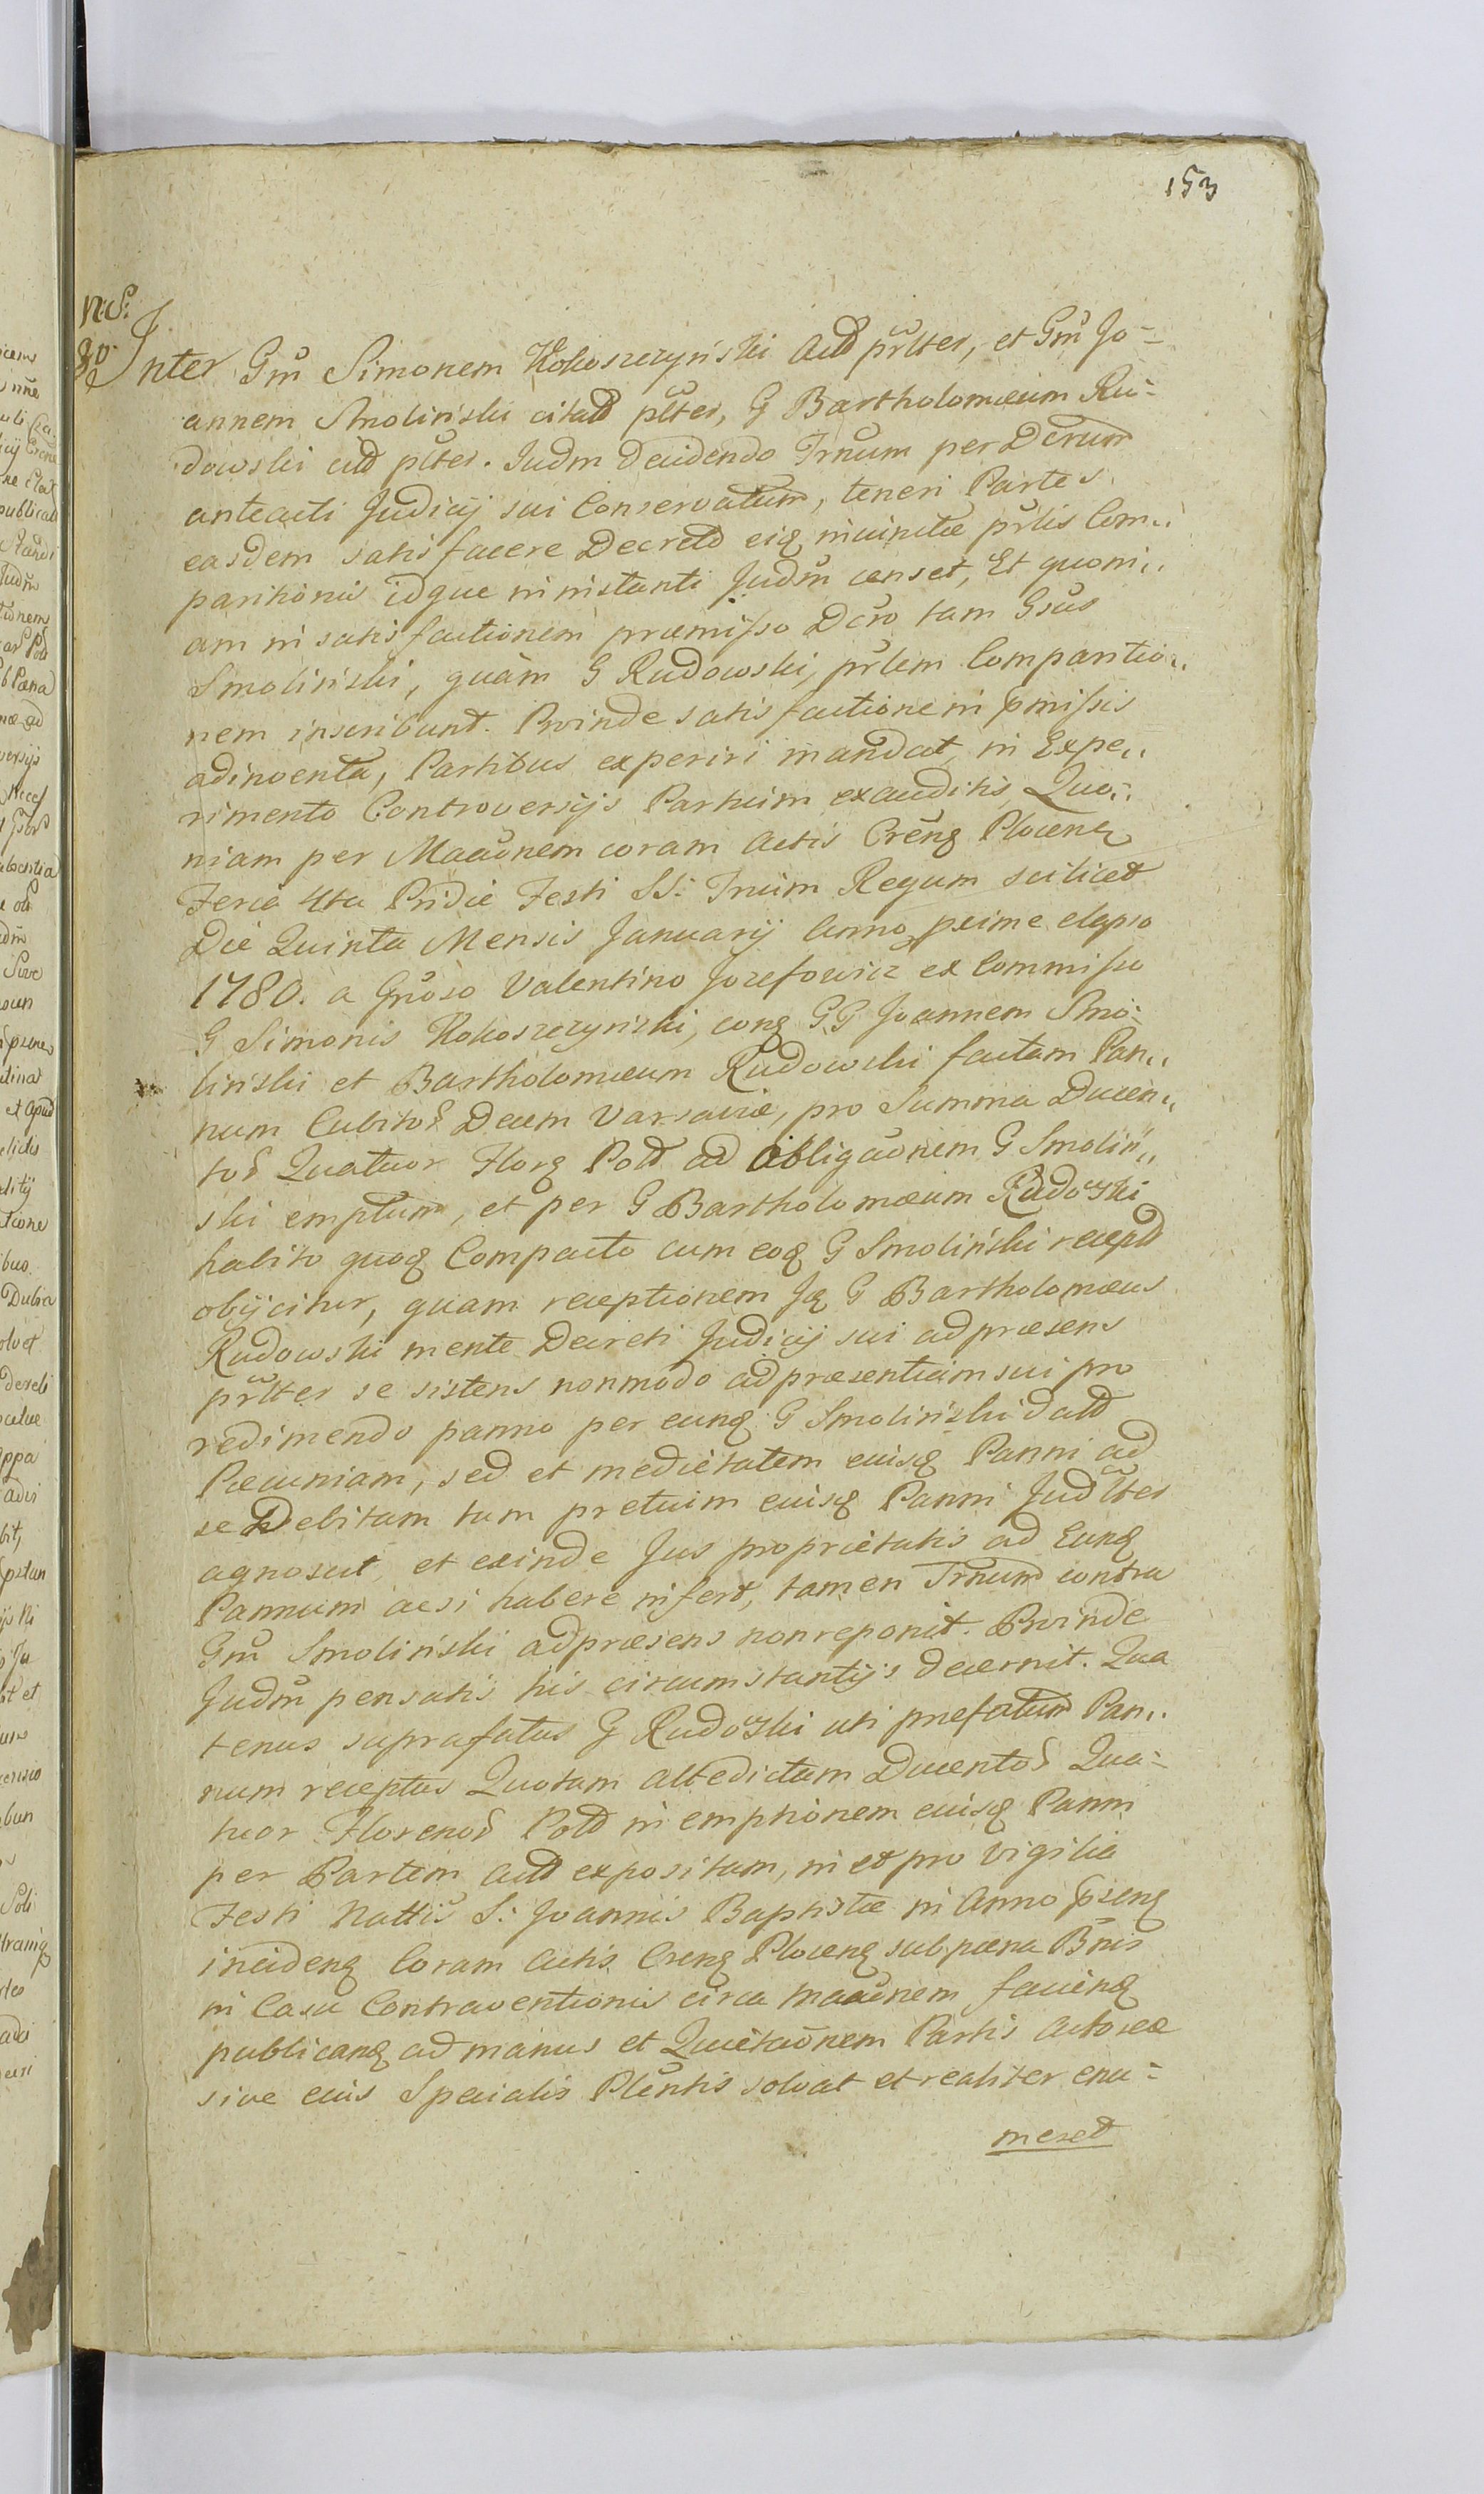 153
N: S:
Inter Gm̃ Simonem Kokoszczyński Actt pr̃ltter, et Gm̃ Jo=
annem Smoliński citatt pltter, G Bartholomæum Ru=
dowski citt pltter. Judm decidendo Trnum per Dcrum
anteacti Judicij sui Conservatum, teneri Partes
easdem satisfacere Decreto eiq inuinctæ pr̃lis Com,,
paritionis idque in instanti Judm̃ censet, Et quoni,,
am in satisfactionem præmisso Dcro tam Gsus
Smoliński, quàm G Rudowski, pr̃lem Comparitio,,
nem inscribunt. Proinde satisfactione in pmissis
adinventa, Partibus experiri mandat, in Expe,,
rimento Controversijs Partium exauditis, Quo,,
niam per Maõnem coram Actis Cren̄q Plocenq
Feria 4ta Pridie Festi SS: Trium Regum scilicet
Die Quinta Mensis Januarij Anno pxime elapso
1780. a Gnoso Valentino Jozefowicz ex Commisso
G Simonis Kokoszczyński, conq GG Joannem Smo=
liński et Bartholomæum Rudowski factam Pan,,
num Cubitos Decem Varsaviæ, pro Summa Ducen,,
tos Quatuor Florq Poll ad Obligaõnem G Smoliń,,
ski emptum, et per G Bartholomæum Rudowski
habito quoq Compacto cum eoq G Smoliński recept
obijcitur, quam receptionem Iq G Bartholomæus
Rudowski mente Decreti Judicij sui ad præsens
pr̃ltter se sistens nonmodo ad præsentiam sui pro
redimendo panno per eunq G Smoliński datt
Pecuniam, sed et medietatem eiusq Panni ad
se Debitam tum pretium eiusq Panni Judltter
agnoscit, et exinde Jus proprietatis ad Eunq
Pannum acsi habere infert, tamen Trnum contra
Gm̃ Smoliński ad præsens non reponit. Proinde
Judm̃ pensatis his circumstantijs decernit. Qua
tenus suprafatus G Rudowski uti præfatum Pan,,
num receptus Quotam altedictam Ducentos Qua=
tuor Florenos Poll in emptionem eiusq Panni
per Partem Actt expositam, in et pro Vigilia
Festi Nattis S: Joannis Baptistæ in Anno psenq
incidenq Coram Actis Crenq Plocenq sub pæna Bnis
in Casu Contraventionis circa Maõnem facienq
publicanq ad manus et Quietaõnem Partis Actoreæ
sive eius Specialis Plentis solvat et realiter enu=
meret